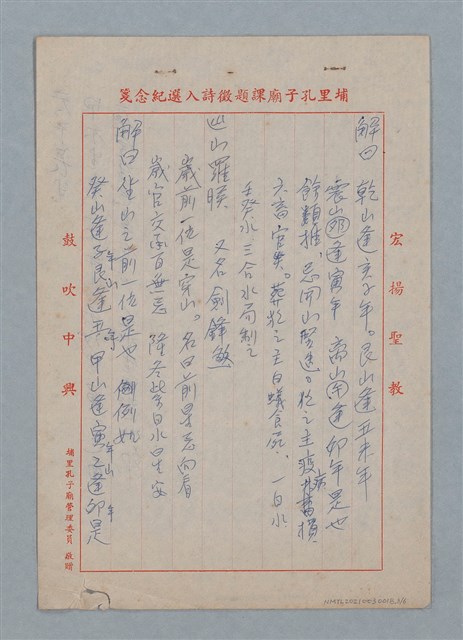 埔里孔子廟課題徵詩入選紀念箋
宏揚聖教
解曰 乾山逢亥子年。艮山逢丑未年
震山卯逢寅年 离山逢卯年是也
餘類推、忌開山 犯之主瘟病損
六畜官災。葬犯之主白蟻食死、一白水
壬癸水三合水局制之
巡山羅睺 又名劍鋒煞
歲前一位是穿山。名曰前 忌向看
歲官交 百無忌 隆冬 白水
解曰坐山之前一位是也 例如
癸山逢子年艮山逢丑年 甲山逢寅年乙山逢卯年是
鼓吹中興
埔里孔子廟管理委員 敬贈
NMTL20210030008_3/8